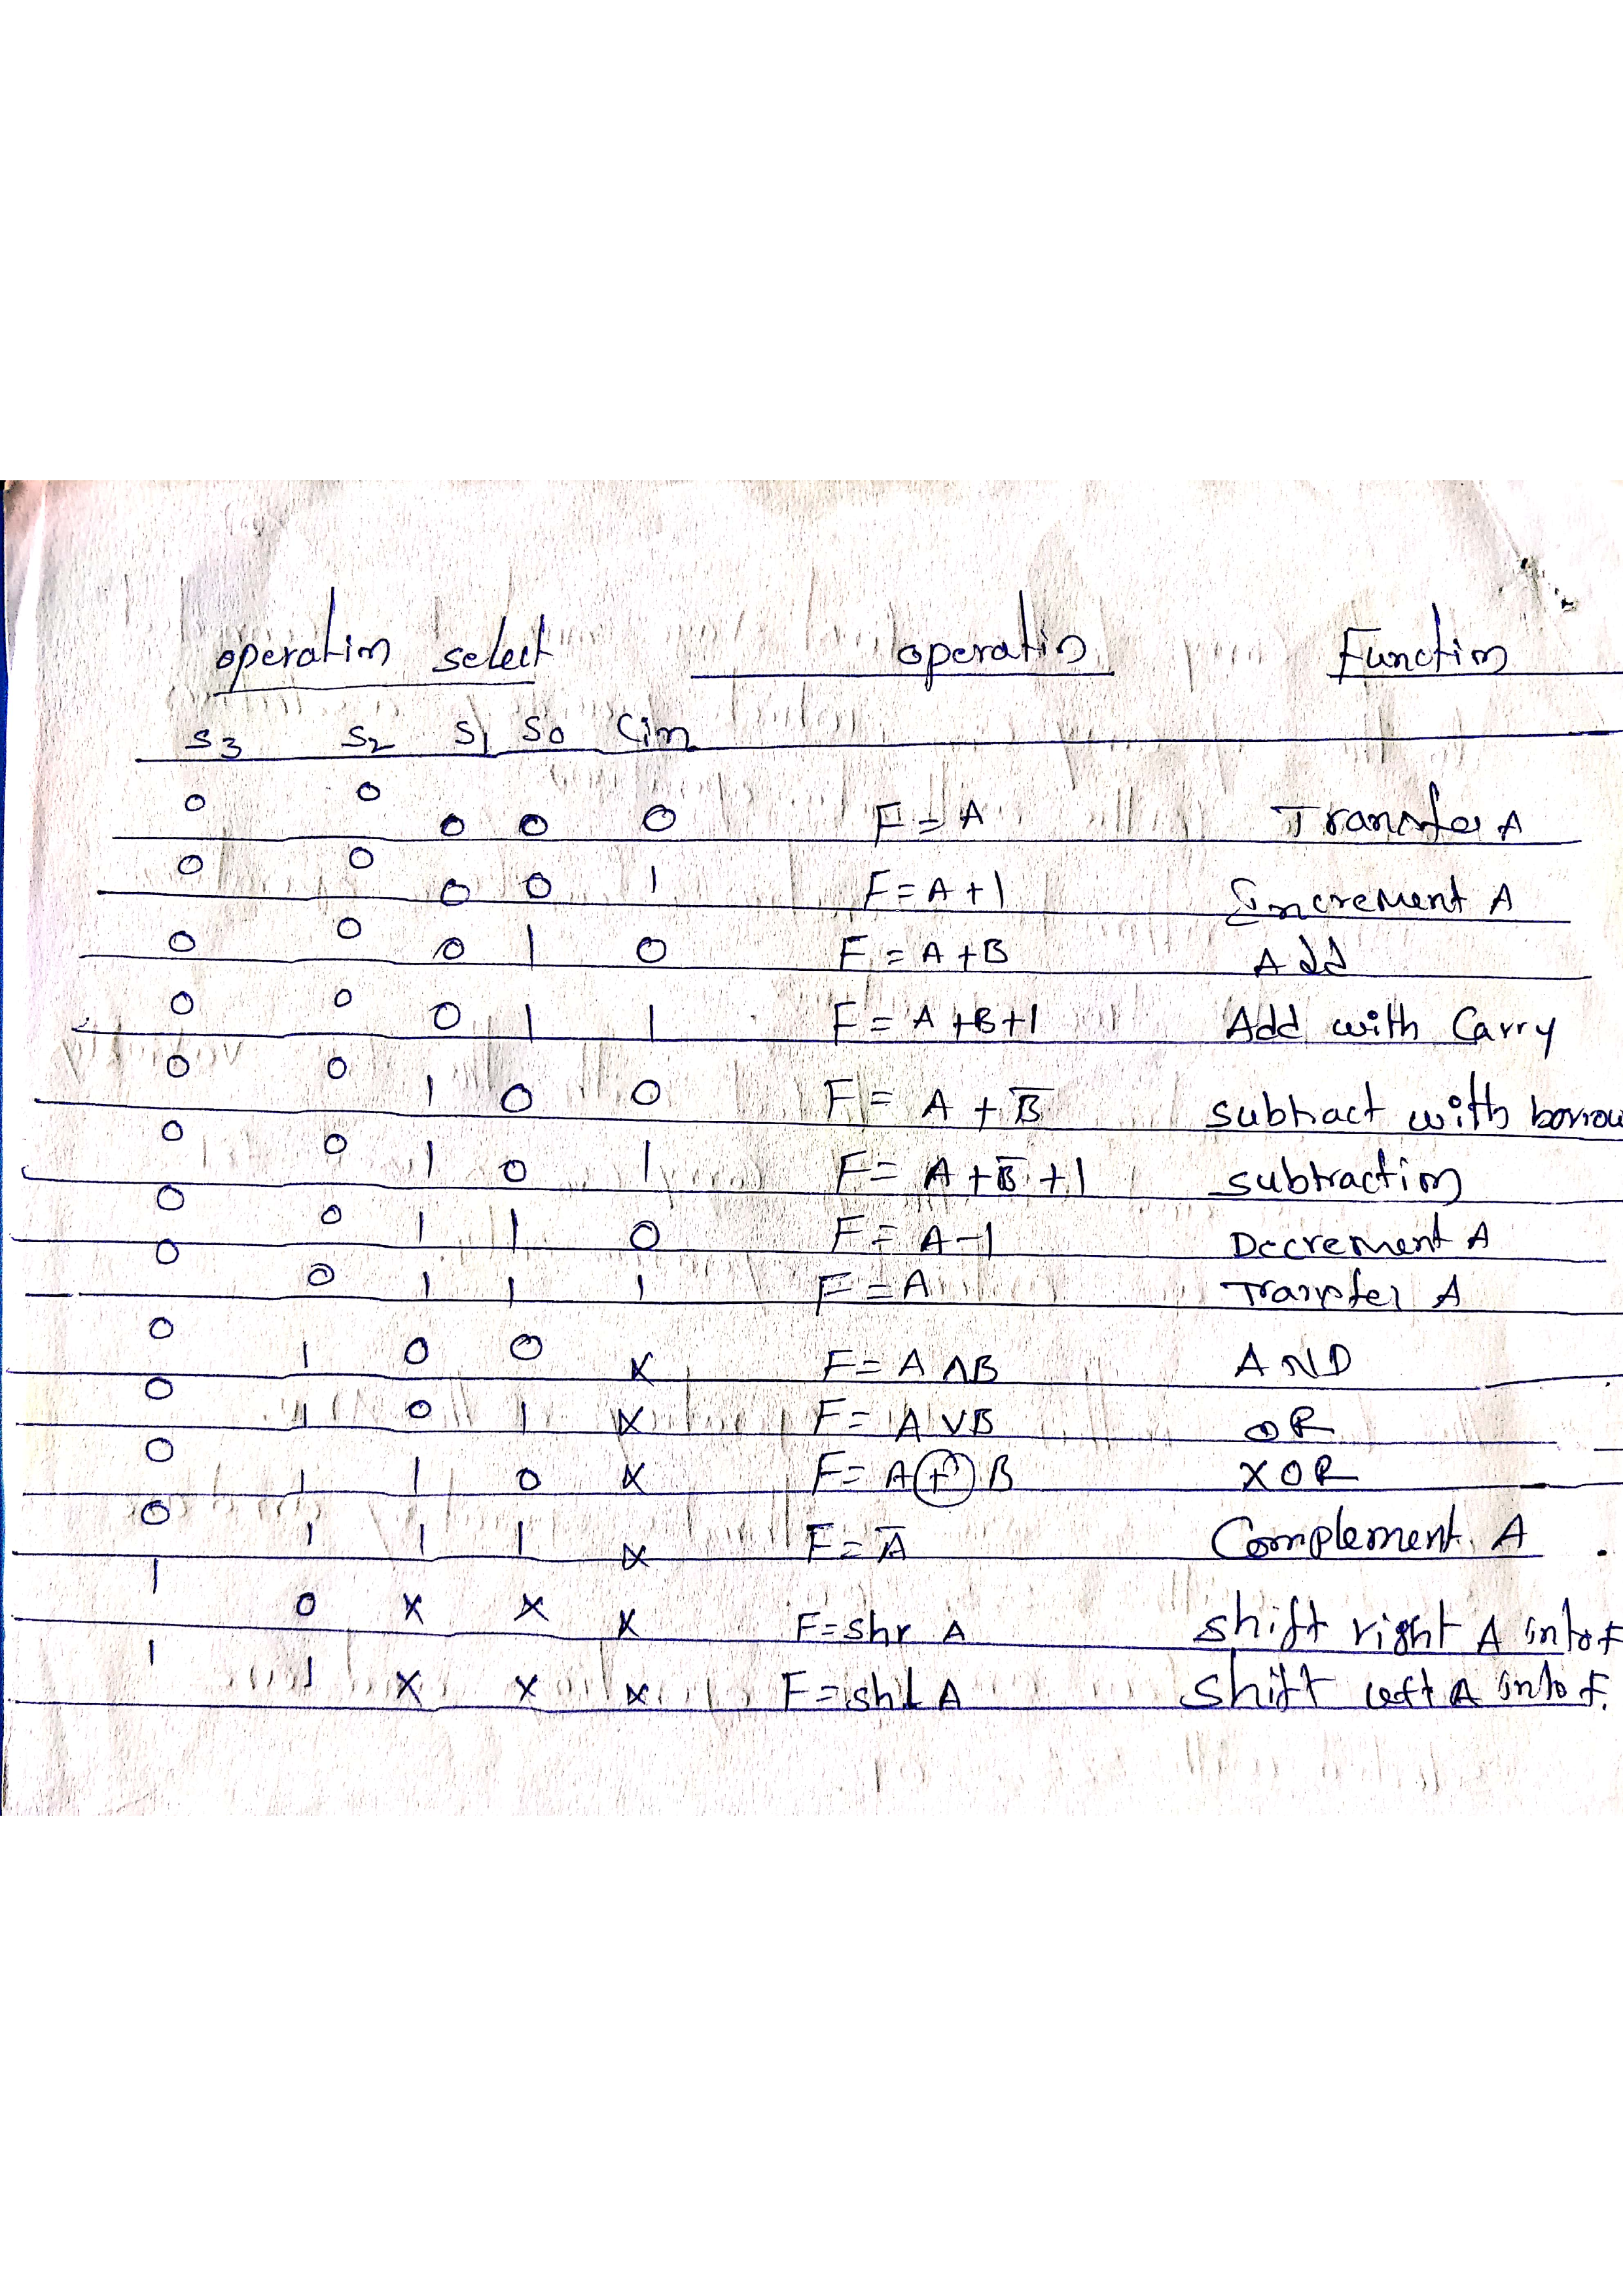 operation select operation Function
S3 S2 S1 S0 Cin
0 0 0 0 0 F = A Transfer A
0 0 0 0 1 F = A + 1 Increment A
0 0 0 1 0 F = A + B Add
0 0 0 1 1 F = A + B + 1 Add with Carry
0 0 1 0 0 F = A + B̅ subtract with borrow
0 0 1 0 1 F = A + B̅ + 1 subtraction
0 0 1 1 0 F = A - 1 Decrement A
0 0 1 1 1 F = A Transfer A
0 1 0 0 X F = A ∧ B AND
0 1 0 1 X F = A ∨ B OR
0 1 1 0 X F = A ⊕ B XOR
0 1 1 1 X F = A̅ Complement A
1 0 X X X F = shr A shift right A into F
1 1 X X X F = shl A shift left A into F.